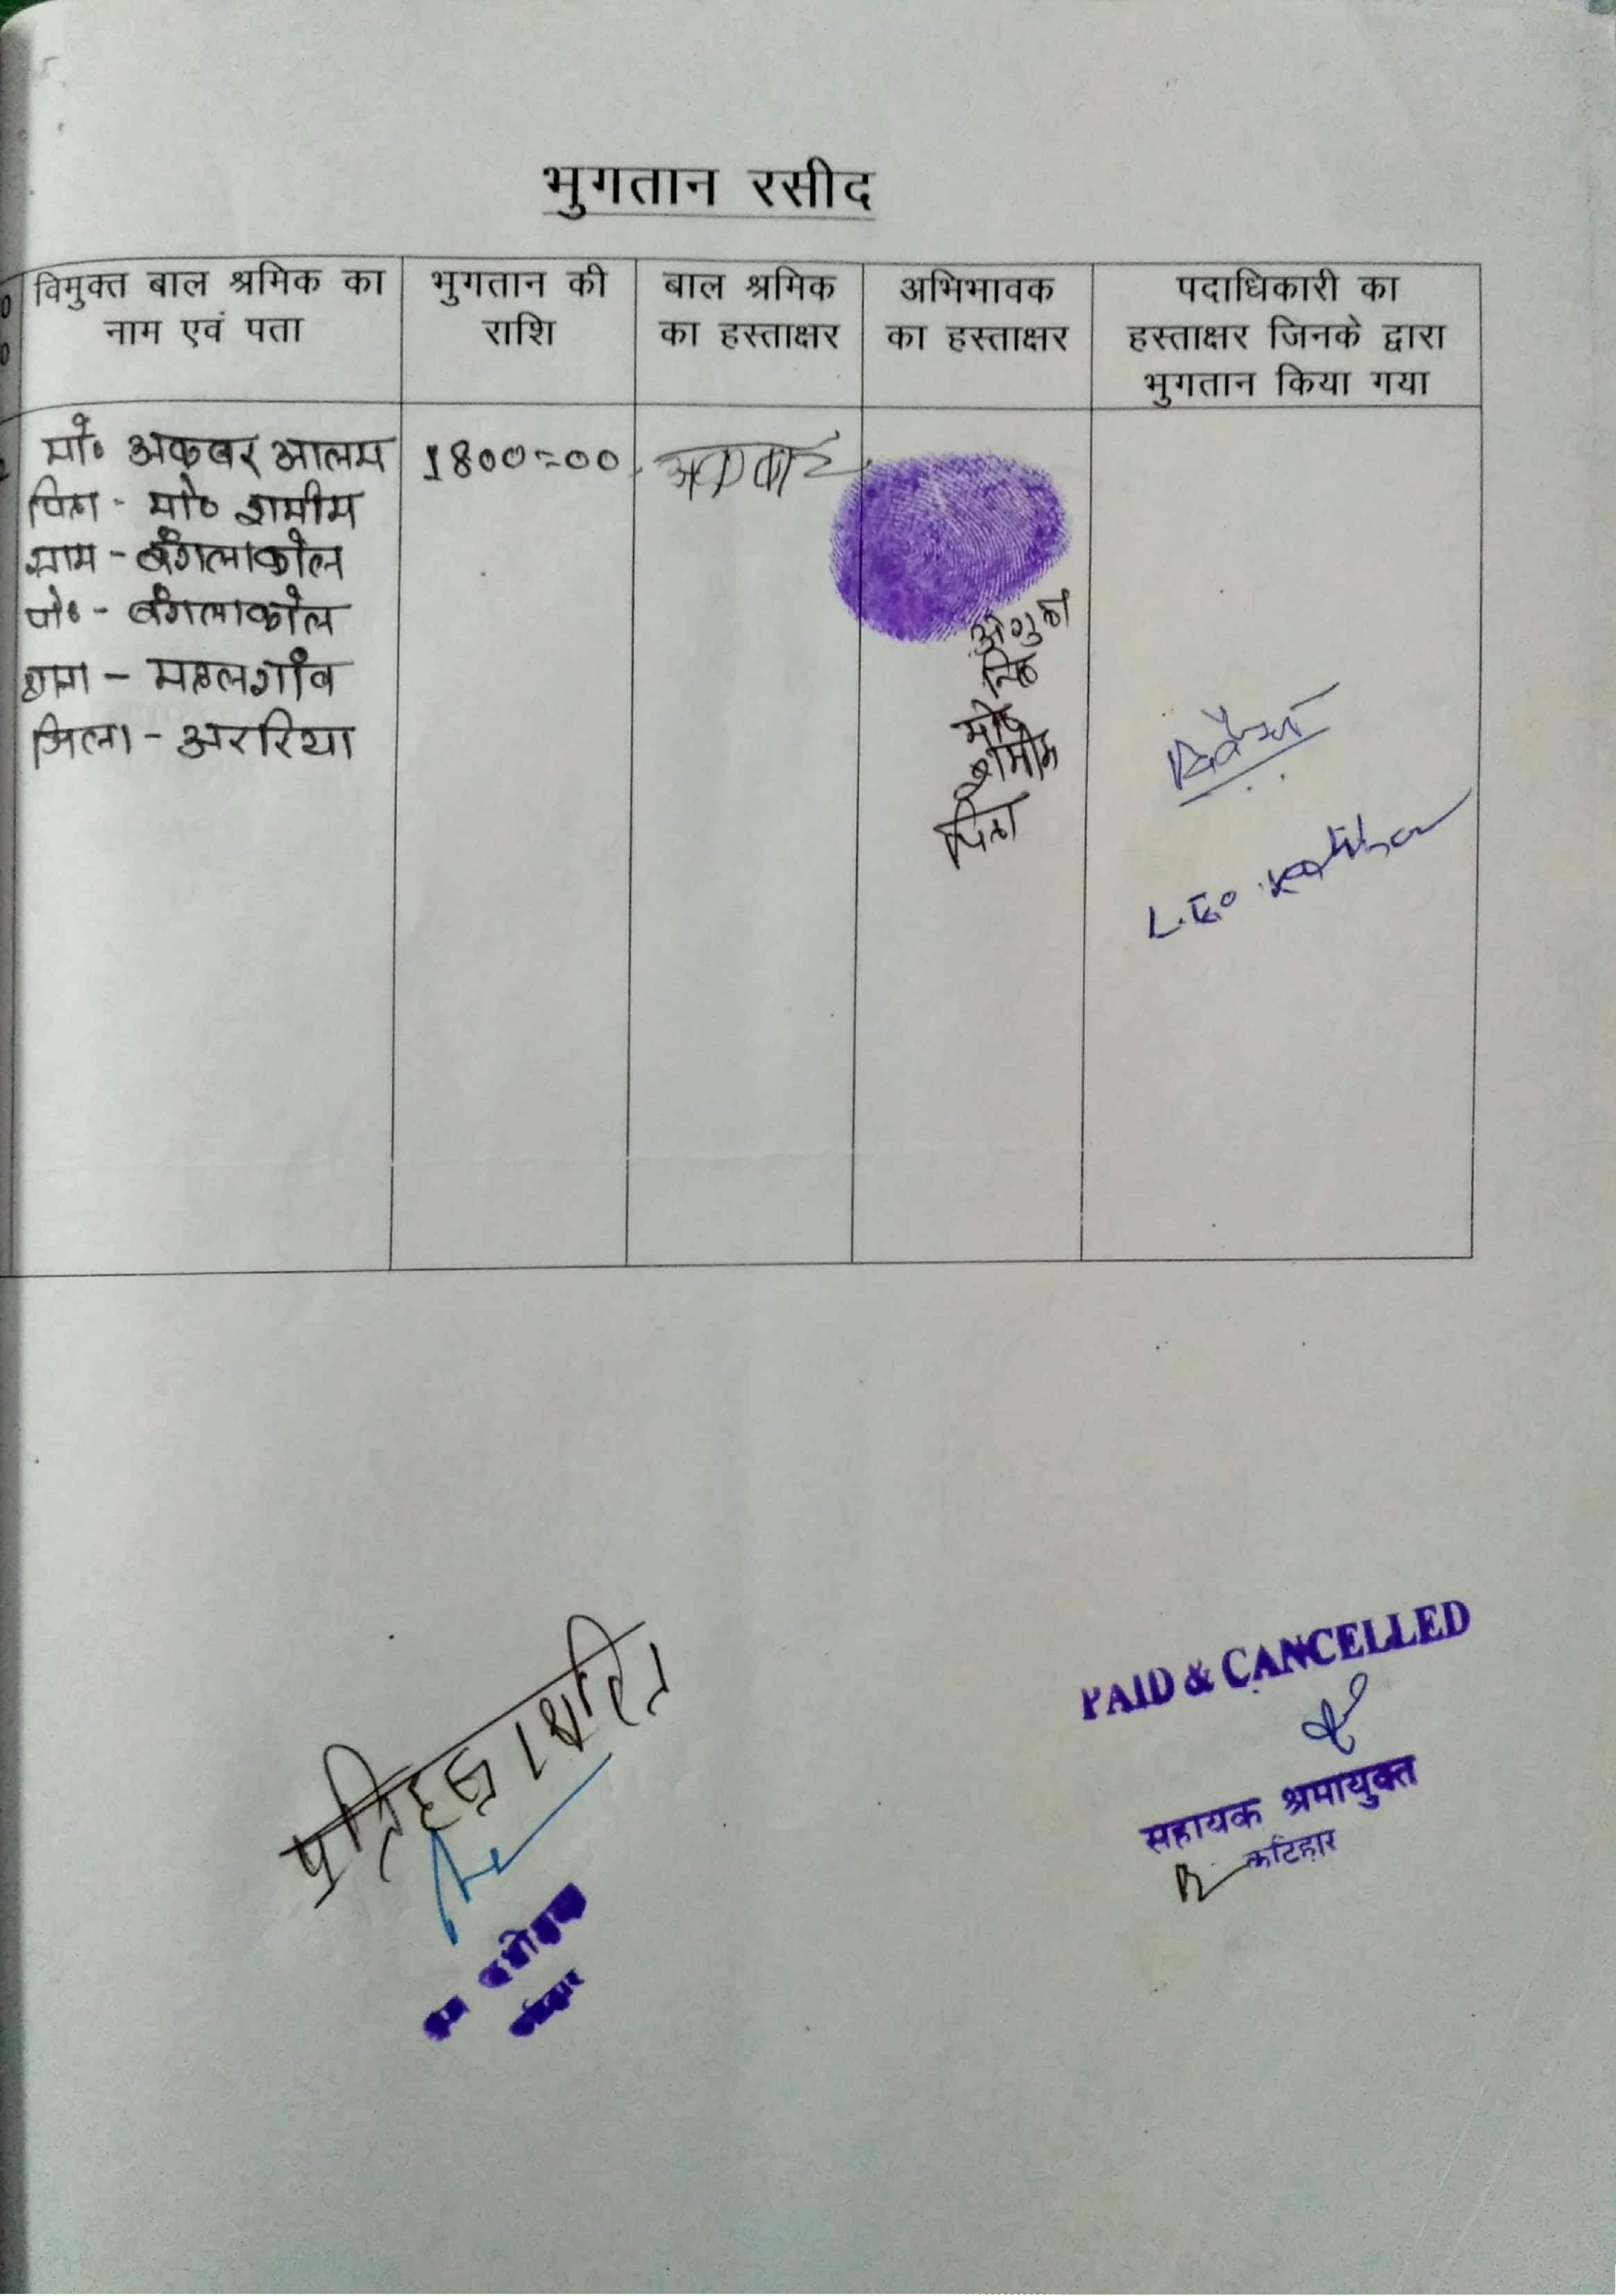 भुगतान रसीद
विमुक्त बाल श्रमिक का
नाम एवं पता
भुगतान की
राशि
बाल श्रमिक
का हस्ताक्षर
अभिभावक
का हस्ताक्षर
पदाधिकारी का
हस्ताक्षर जिनके द्वारा
भुगतान किया गया
मो० अकबर आलम
पिता - मो० शमीम
ग्राम - बंगलाकोल
पो० - बंगलाकोल
थाना - महलगाँव
जिला - अररिया
1800=00
अंगुठा
मो०
शमीम
पिता
L.E.O Katihar
PAID & CANCELLED
सहायक श्रमायुक्त
कटिहार